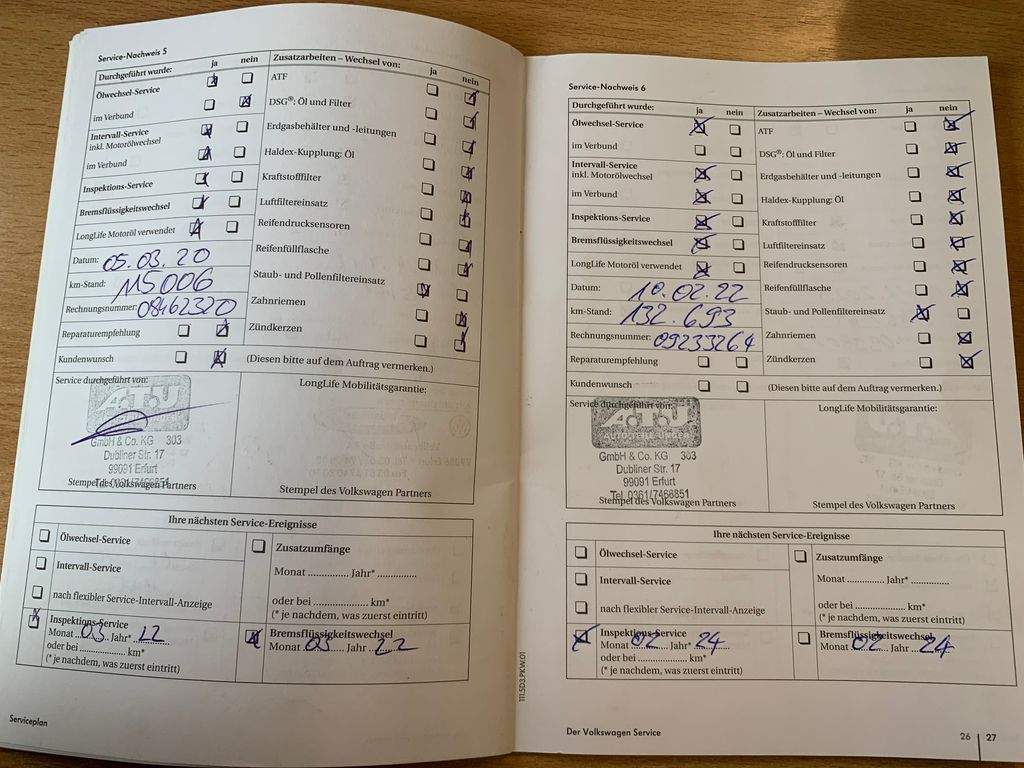 Service-Nachweis 5
Durchgeführt wurde: ja nein Zusatzarbeiten – Wechsel von: ja nein
Ölwechsel-Service ATF
im Verbund DSG®: Öl und Filter
Intervall-Service Erdgasbehälter und -leitungen
inkl. Motorölwechsel
im Verbund Haldex-Kupplung: Öl
Inspektions-Service Kraftstofffilter
Bremsflüssigkeitswechsel Luftfiltereinsatz
LongLife Motoröl verwendet Reifendrucksensoren
Datum: 05.03.20 Reifenfüllflasche
km-Stand: 115006 Staub- und Pollenfiltereinsatz
Rechnungsnummer: 08462320 Zahnriemen
Reparaturempfehlung Zündkerzen
Kundenwunsch (Diesen bitte auf dem Auftrag vermerken.)
Service durchgeführt von: LongLife Mobilitätsgarantie:
A.T.U
GmbH & Co. KG 303
Dubliner Str. 17
99091 Erfurt
Tel. 0361/7466851
Stempel des Volkswagen Partners Stempel des Volkswagen Partners
Ihre nächsten Service-Ereignisse
Ölwechsel-Service Zusatzumfänge
Intervall-Service Monat .............. Jahr* ..............
nach flexibler Service-Intervall-Anzeige oder bei .................... km*
(* je nachdem, was zuerst eintritt)
Inspektions-Service Bremsflüssigkeitswechsel
Monat 03 Jahr* 22 Monat 03 Jahr 22
oder bei .................... km*
(* je nachdem, was zuerst eintritt)
Serviceplan
Service-Nachweis 6
Durchgeführt wurde: ja nein Zusatzarbeiten – Wechsel von: ja nein
Ölwechsel-Service ATF
im Verbund DSG®: Öl und Filter
Intervall-Service Erdgasbehälter und -leitungen
inkl. Motorölwechsel
im Verbund Haldex-Kupplung: Öl
Inspektions-Service Kraftstofffilter
Bremsflüssigkeitswechsel Luftfiltereinsatz
LongLife Motoröl verwendet Reifendrucksensoren
Datum: 10.02.22 Reifenfüllflasche
km-Stand: 132.693 Staub- und Pollenfiltereinsatz
Rechnungsnummer: 09233264 Zahnriemen
Reparaturempfehlung Zündkerzen
Kundenwunsch (Diesen bitte auf dem Auftrag vermerken.)
Service durchgeführt von: LongLife Mobilitätsgarantie:
A.T.U
AUTO-TEILE-UNGER
GmbH & Co. KG 303
Dubliner Str. 17
99091 Erfurt
Tel. 0361/7466851
Stempel des Volkswagen Partners Stempel des Volkswagen Partners
Ihre nächsten Service-Ereignisse
Ölwechsel-Service Zusatzumfänge
Intervall-Service Monat .............. Jahr* ..............
nach flexibler Service-Intervall-Anzeige oder bei .................... km*
(* je nachdem, was zuerst eintritt)
Inspektions-Service Bremsflüssigkeitswechsel
Monat 02 Jahr* 24 Monat 02 Jahr 24
oder bei .................... km*
(* je nachdem, was zuerst eintritt)
111.5D3.PKW.01
Der Volkswagen Service 26 27